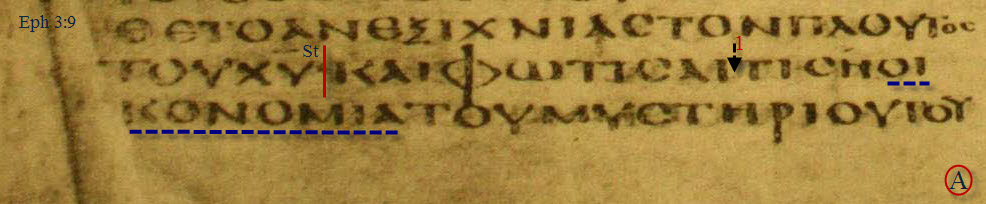 Eph 3:9
ΘΕΤΟΑΝΕΞΙΧΝΙΑϹΤΟΝΠΛΟΥΤΟϹ
St
1
ΤΟΥΧΥΚΑΙΦΩΤΙϹΑΙΤΙϹΗΟΙ
ΚΟΝΟΜΙΑΤΟΥΜΥϹΤΗΡΙΟΥΤΟΥ
A